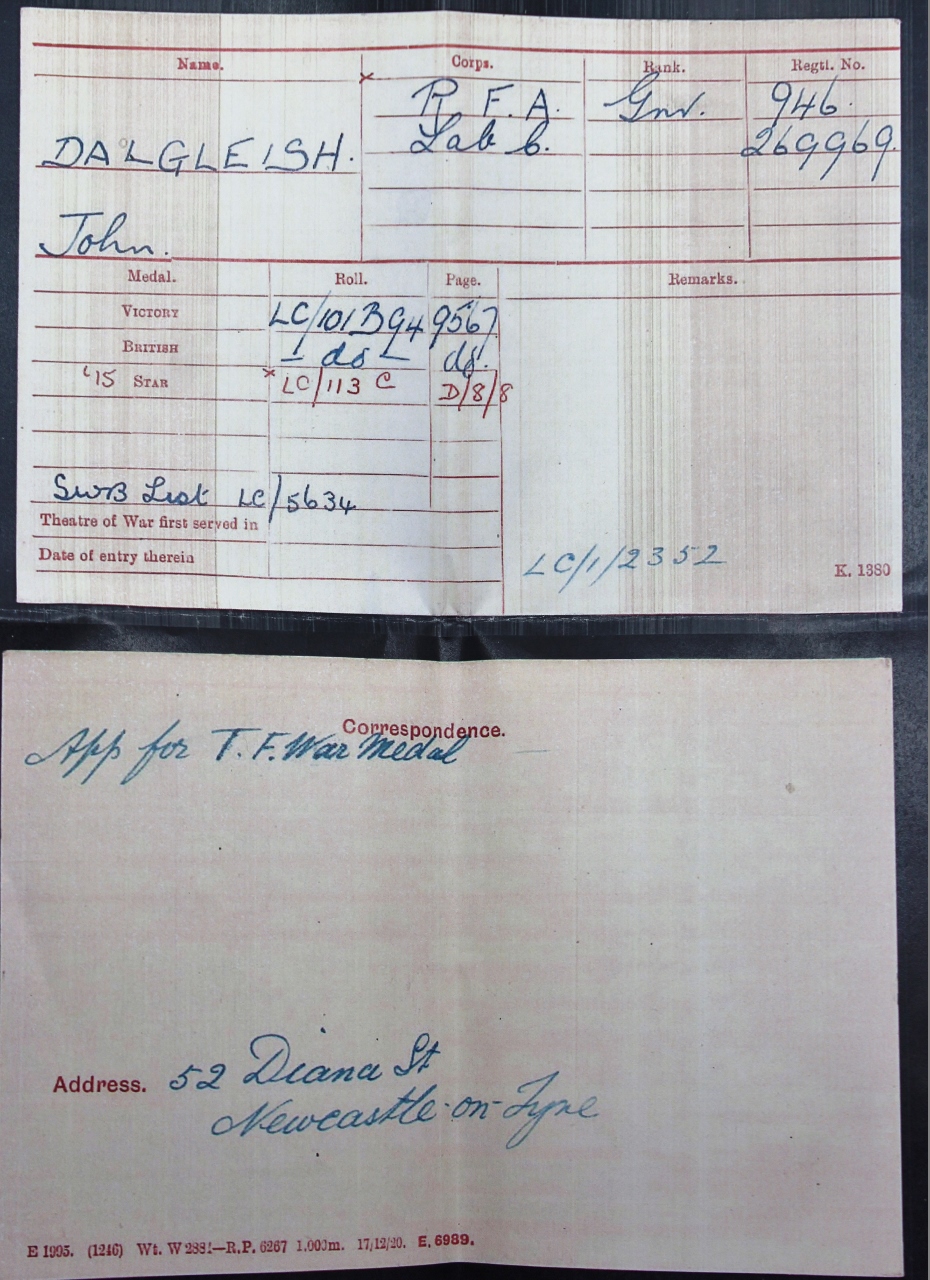 Name. Corps. Rank. Regtl. No.
× R. F. A. Gnr. 946.
DALGLEISH. Lab C. 269969.
John.
Medal. Roll. Page. Remarks.
VICTORY LC/101 B94 9567
BRITISH - do - do.
'15 STAR × LC/113 C D/8/8
SWB List LC/5634
Theatre of War first served in
Date of entry therein
LC/1/2352
K. 1380
Correspondence.
App for T. F. War Medal
Address. 52 Diana St
Newcastle-on-Tyne
E 1995. (1246) Wt. W 2881—R.P. 6267 1,000m. 17/12/20. E. 6989.